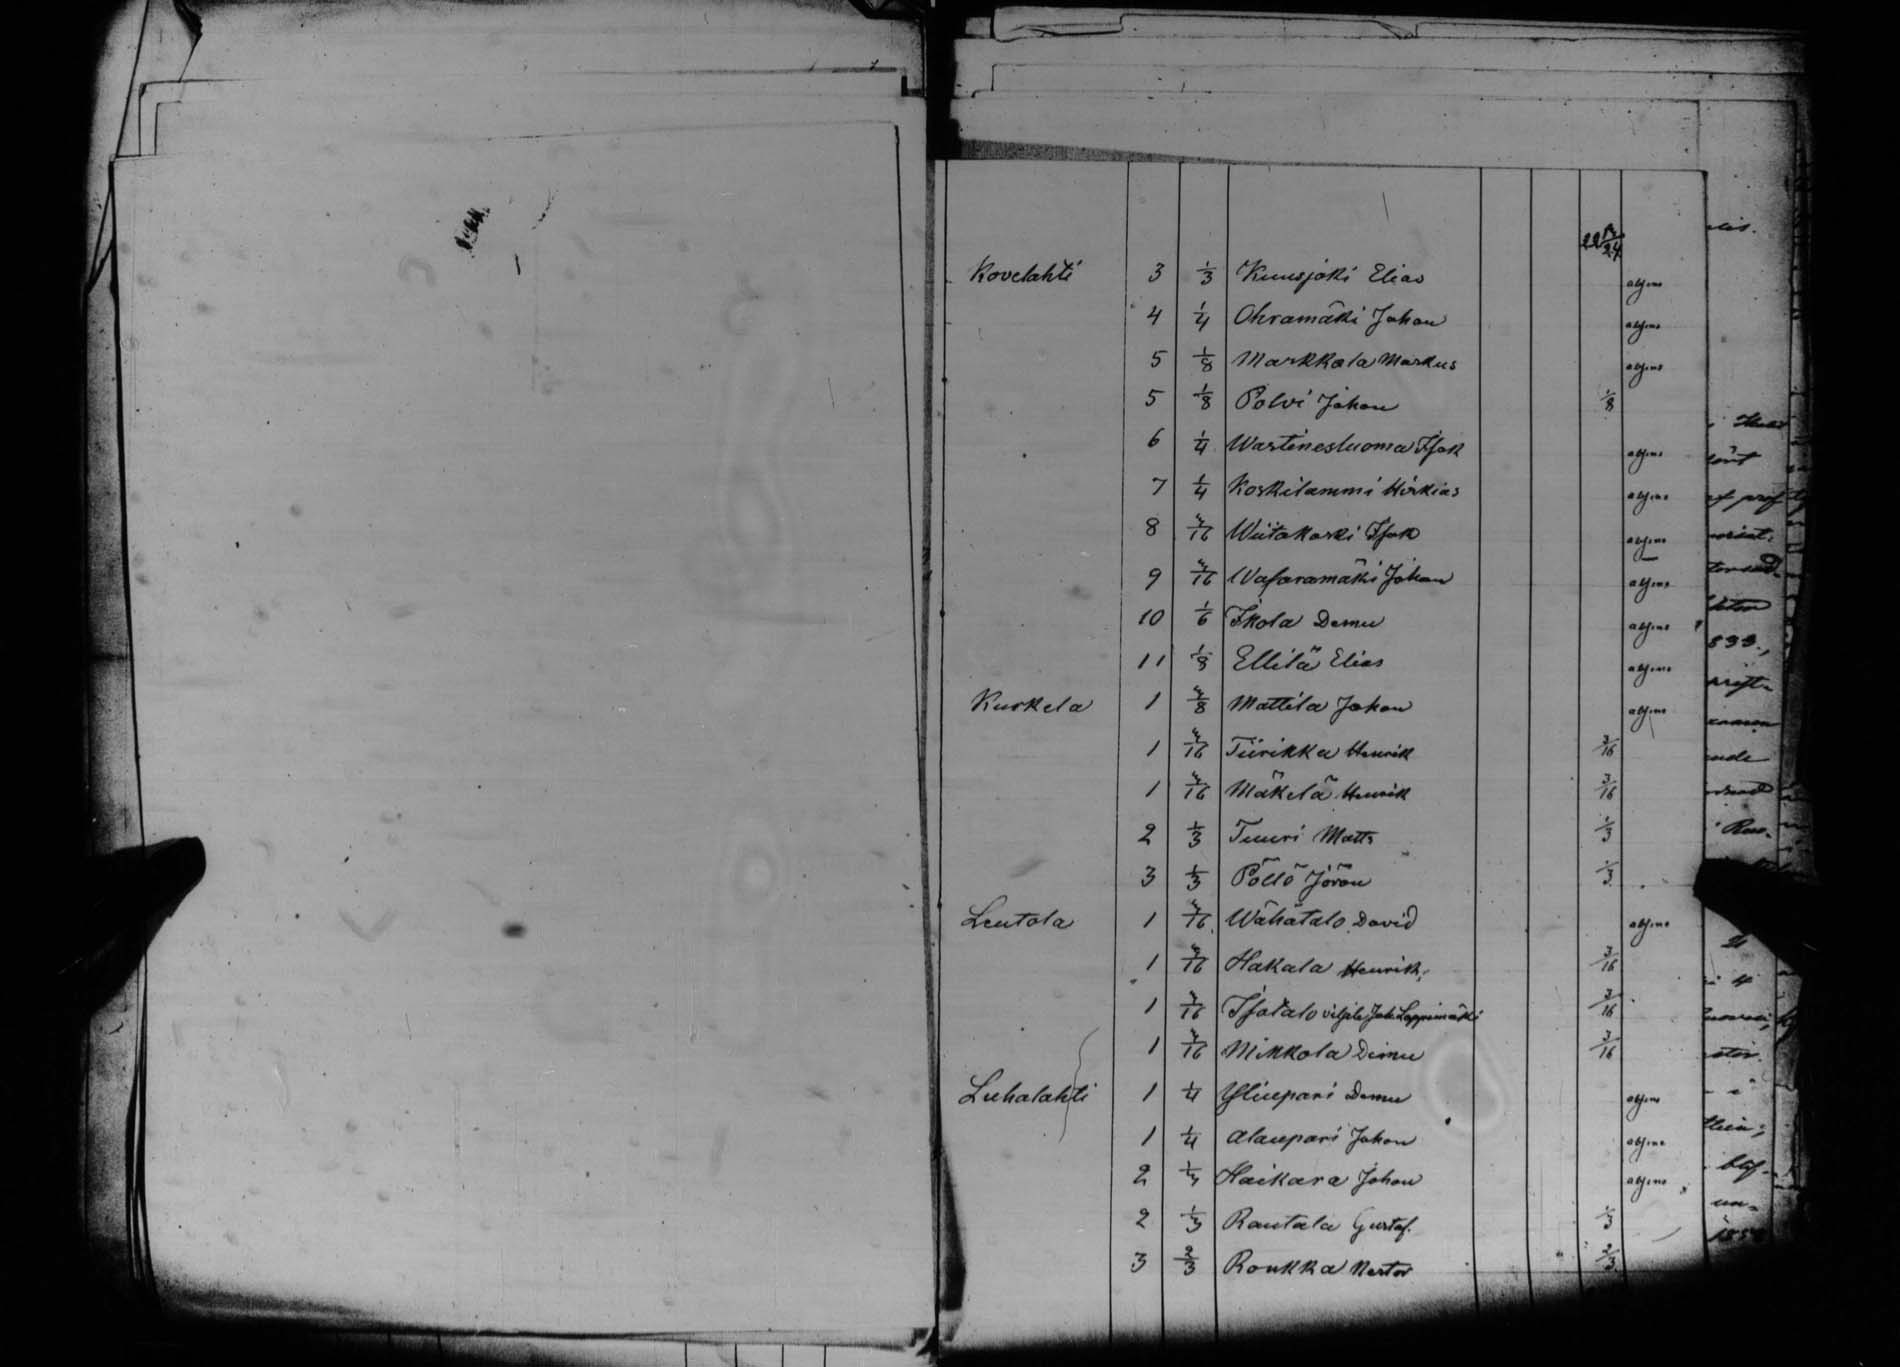 Kovelahti 3 1/3 Kuusjoki Elias afgins
4 1/4 Ohramäki Johan afgins
5 1/8 Markkala Markus afgins
5 1/8 Polvi Johan 1/8
6 1/4 Wastinesluoma Isak afgins
7 1/4 Koskilammi Hiskias afgins
8 3/16 Wiitakoski Isak afgins
9 3/16 Wasaramäki Johan afgins
10 1/6 Ikola Demu afgins
11 1/8 Ellilä Elias afgins
Kuskela 1 3/8 Mattila Johan afgins
1 3/16 Tiirikka Henrik 3/16
1 3/16 Mäkelä Henrik 3/16
2 1/3 Tuuri Matts 1/3
3 1/3 Pöllö Jöran 1/3
Leutola 1 3/16 Wähätalo David afgins
1 3/16 Hakala Henrik 3/16
1 3/16 Isotalo Loppimäki 3/16
1 3/16 Mikkola Demu 3/16
Luhalahti 1 1/4 Yliupari Demu afgins
1 1/4 Alaupari Johan afgins
2 1/3 Haikara Johan afgins
2 1/3 Rautala Gustaf. 1/3
3 2/3 Roukka Nestor 2/3